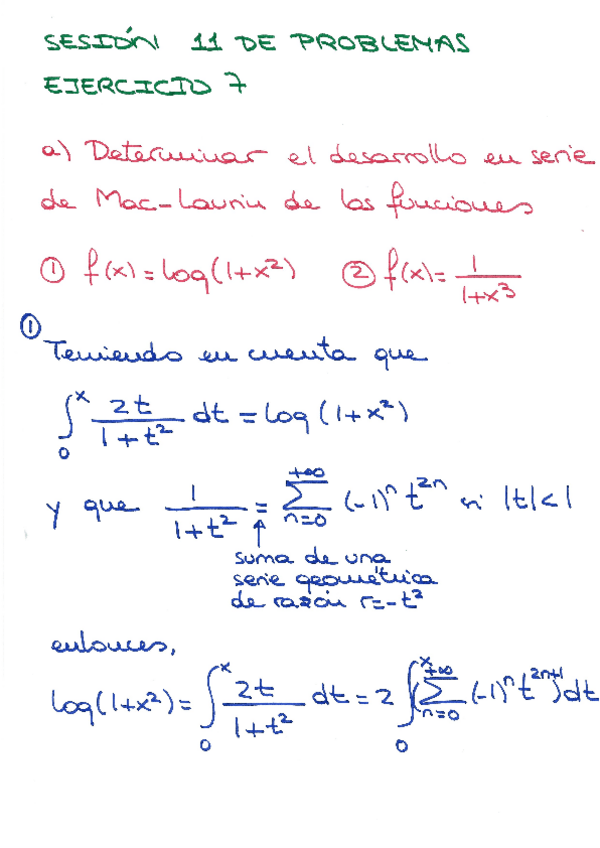 SESIÓN 11 DE PROBLEMAS
EJERCICIO 7
a) Determinar el desarrollo en serie
de Mac-Laurin de las funciones
① f(x) = log(1+x²) ② f(x) = 1/(1+x³)
①
Teniendo en cuenta que
∫₀ˣ 2t/(1+t²) dt = log(1+x²)
y que 1/(1+t²) = ∑_{n=0}^{+∞} (-1)ⁿ t²ⁿ si |t|<1
↑
suma de una
serie geométrica
de razón r=-t²
entonces,
log(1+x²) = ∫₀ˣ 2t/(1+t²) dt = 2 ∫₀ˣ (∑_{n=0}^{+∞} (-1)ⁿ t²ⁿ⁺¹) dt